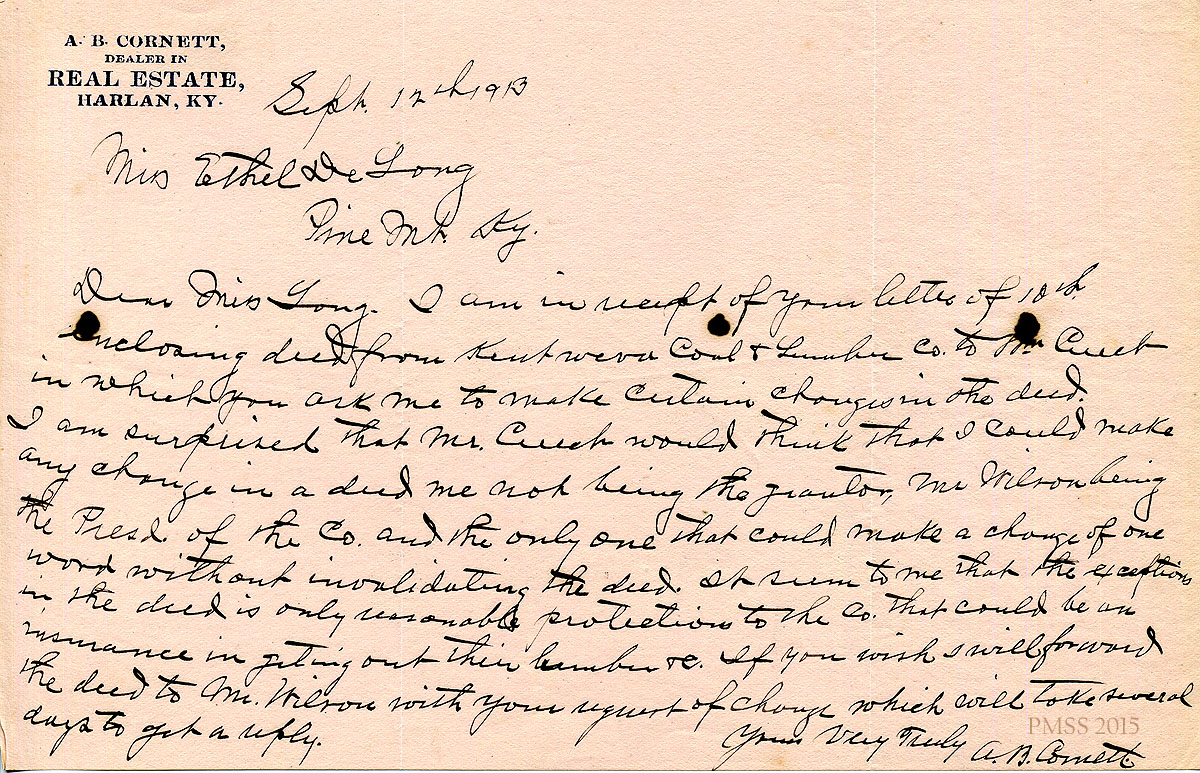 A. B. CORNETT,
DEALER IN
REAL ESTATE,
HARLAN, KY.
Sept. 12th 1913
Miss Ethel De Long
Pine Mt. Ky.
Dear Miss Long. I am in receipt of your letter of 10th.
enclosing deed from Kentweva Coal & Lumber Co. to Mr Creech
in which you ask me to make certain changes in the deed.
I am surprised that Mr. Creech would think that I could make
any change in a deed me not being the grantor, Mr Wilson being
the Presd. of the Co. and the only one that could make a change of one
word without invalidating the deed. It seem to me that the exceptions
in the deed is only reasonable protection to the Co. that could be an
insurance in giting out their lumber &c. If you wish I will forward
the deed to Mr. Wilson with your request of change which will take several
days to get a reply.
Yours Very Truly A. B. Cornett
PMSS 2015